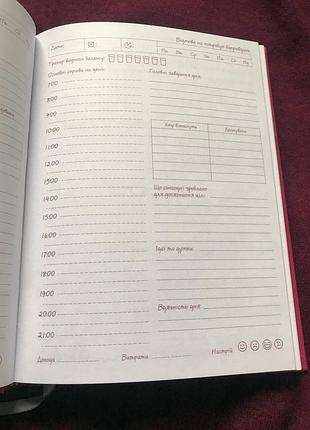 Дата
Пн Вт Ср Чт Пт Сб Нд
Трекер водного балансу
Основні справи та цілі
Головні завдання дня
7:00
8:00
9:00
10:00
11:00
12:00
13:00
14:00
15:00
16:00
17:00
18:00
19:00
20:00
21:00
Кому
Що сьогодні зроблено
для досягнення цілі
Ідеї та думки
Вдячність дня
Доходи
Витрати
Настрій